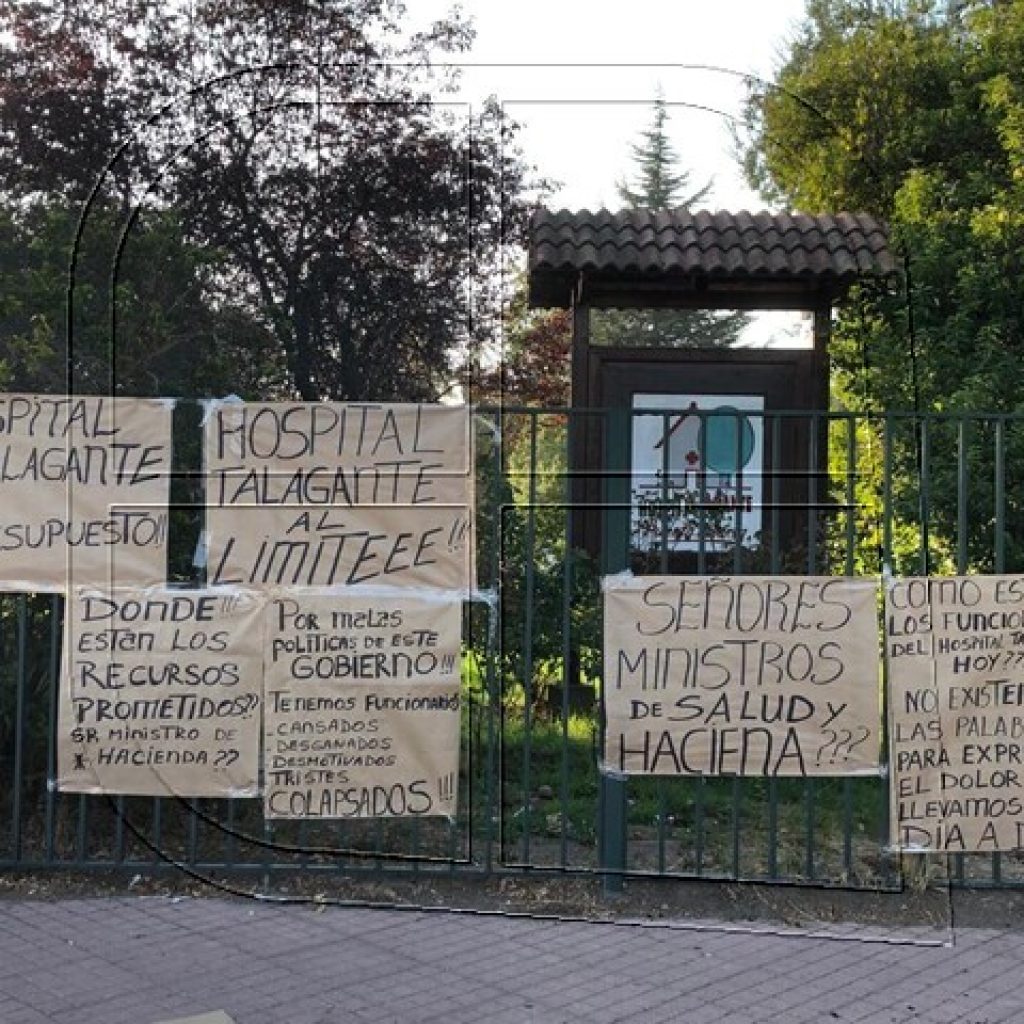 SPITAL
ALAGANTE
ESUPUESTO!!
HOSPITAL
TALAGANTE
AL
LIMITEEE!!!
DONDE!!!
ESTÁN LOS
RECURSOS
PROMETIDOS??
SR MINISTRO DE
HACIENDA??
POR MALAS
POLÍTICAS DE ESTE
GOBIERNO!!!
TENEMOS FUNCIONARIOS
- CANSADOS
- DESGANADOS
DESMOTIVADOS
TRISTES
COLAPSADOS!!!
SEÑORES
MINISTROS
DE SALUD Y
HACIENA???
COMO ES
LOS FUNCIO
DEL HOSPITAL TA
HOY??
NO EXISTEN
LAS PALAB
PARA EXPR
EL DOLOR
LLEVAMOS
DÍA A D